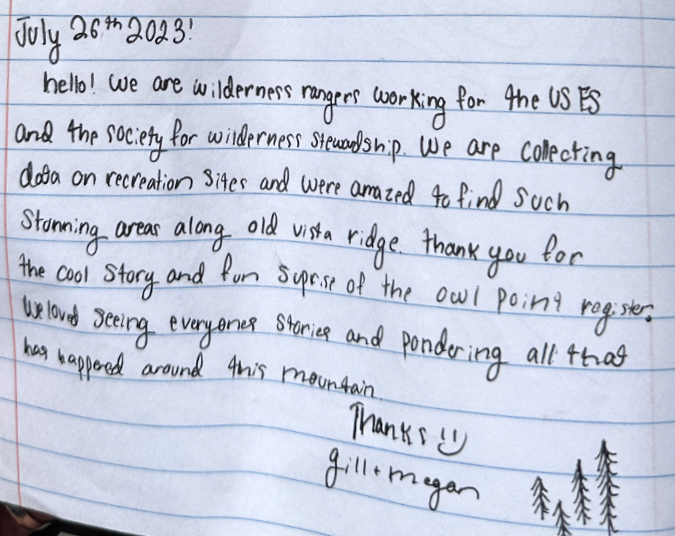 July 26th 2023!
hello! We are wilderness rangers working for the US FS
and the society for wilderness stewardship. We are collecting
data on recreation sites and were amazed to find such
stunning areas along old vista ridge. thank you for
the cool story and fun suprise of the owl point register.
We loved seeing everyones stories and pondering all that
has happened around this mountain.
Thanks :)
gill + megan